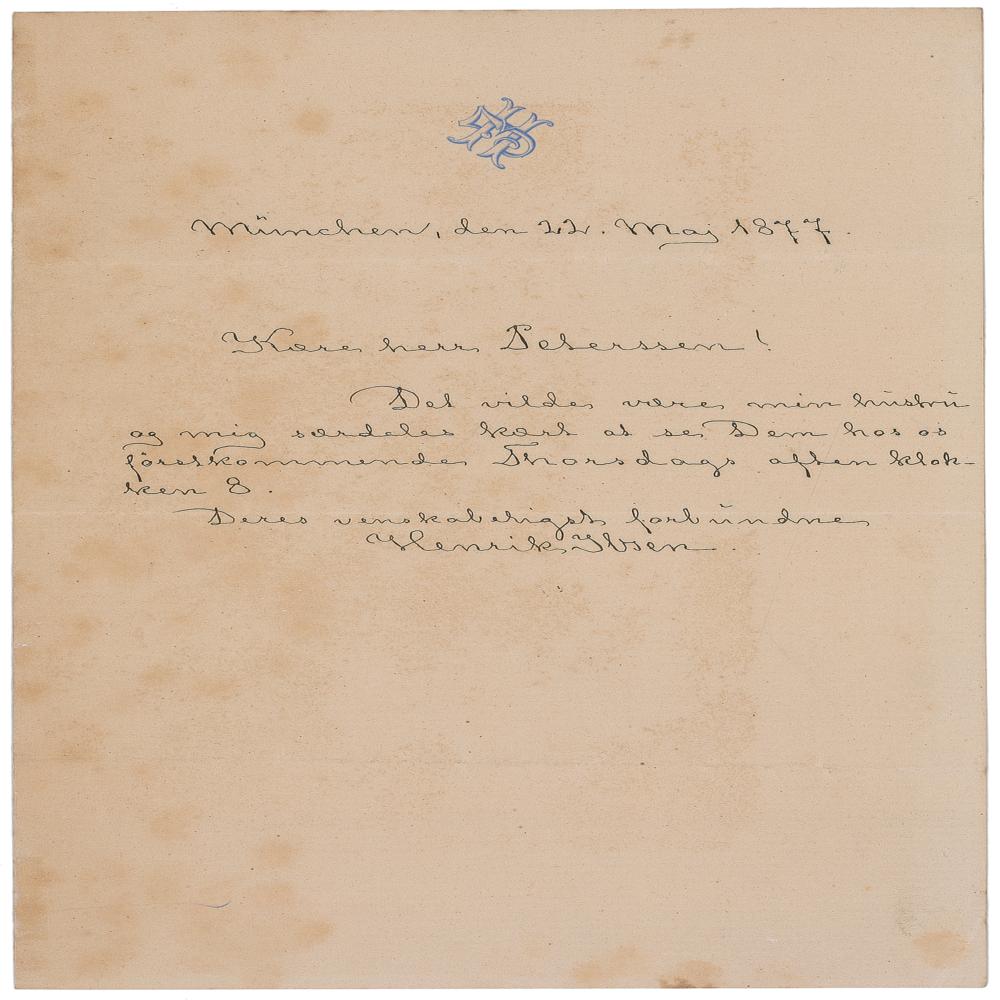 München, den 22. Maj 1877.
Kære herr Peterssen!
Det vilde være min hustru
og mig særdeles kært at se Dem hos os
førstkommende Thorsdags aften klok-
ken 8.
Deres venskabeligst forbundne
Henrik Ibsen.